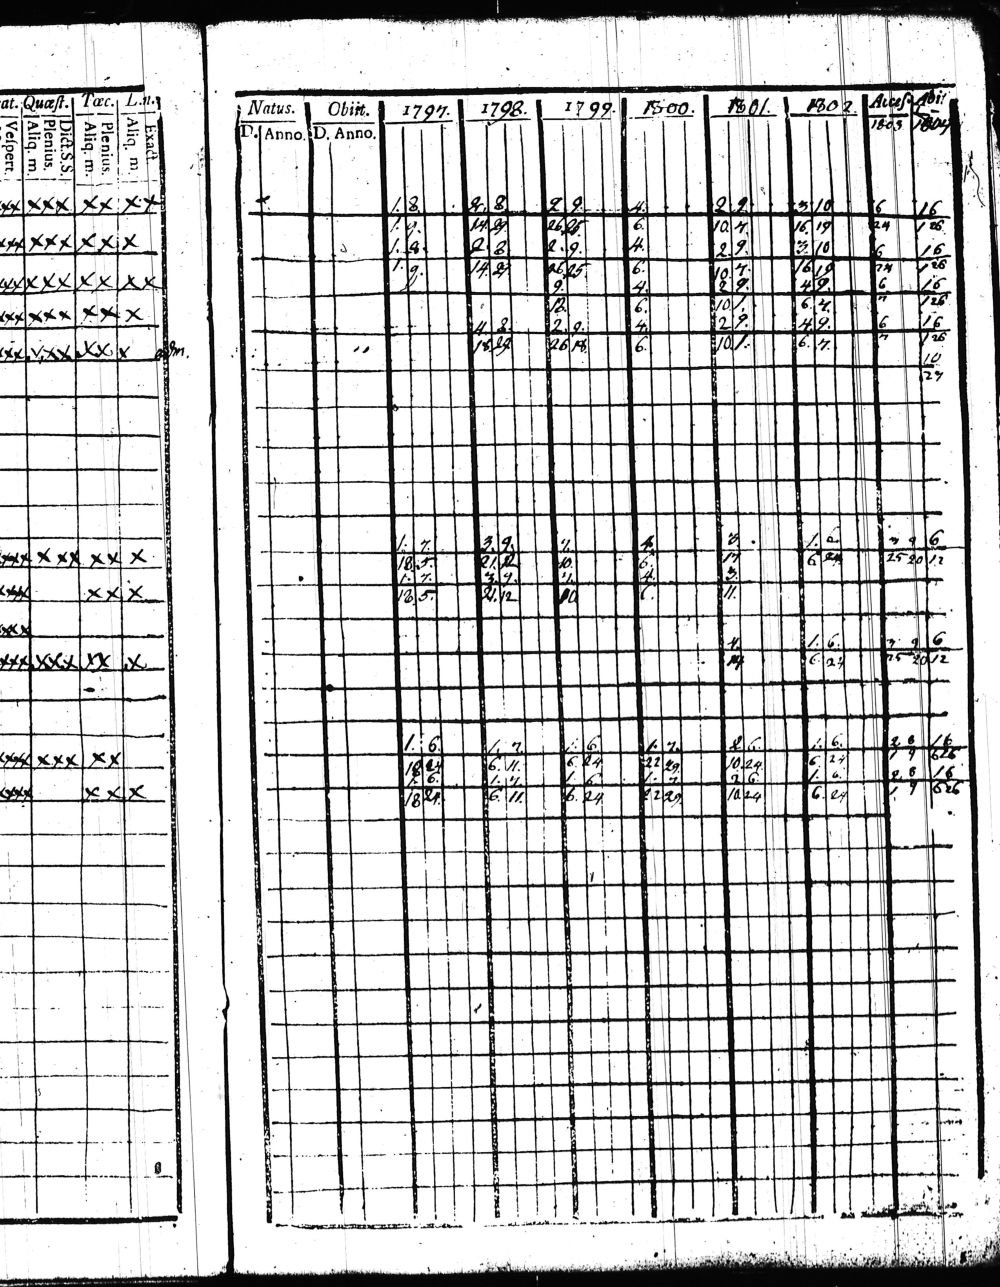 at. Quæſt. Tæc. L.n.
Veſpert. Aliq. m. Plenius. Dict.S.S Aliq. m. Plenius. Aliq. m. Exact
Natus. Obiit. 1797. 1798. 1799. 1800. 1801. 1802. Acceſ. Abiit
D. Anno. D. Anno. 1803
xxx xxx xx xx 1. 8. 2. 8. 2. 9. 4. 2 9. 3. 10 6 16
1. 9. 14. 29 26. 25 6. 10. 7. 16. 19 24 1 26
xxx xxx xx x 1. 8. 2. 8 2. 9. 4. 2 9. 3. 10 6 16
1. 9. 14. 29 26. 25 6. 10. 7. 16 19 24 1 26
xxx xxx xx xx 9. 4. 2 9. 4 9. 6 16
12. 6. 10 1. 6. 7. 7 1 26
xxx xxx xx x 4. 8. 2. 9. 4. 2 9. 4. 9. 6 16
xxx xxx xx x 18. 29 26 18. 6. 10. 1. 6. 7. 7 1 26
10
27
1. 7. 3. 9. 7. 4. 3. 1. 6 3 9 6
xxxx xxx xx x 18. 5. 21. 12 10. 6. 17. 6 24 25 20 12
1. 7. 3. 9. 7. 4. 3.
xxx xx x 18. 5. 21. 12 10. 6. 11.
xxx
4. 1. 6. 3 9 6
xxx xxx xx x 14 6. 24 25 20 12
1. 6. 1. 7. 1. 6 1. 7. 2 6. 1. 6. 2 8 16
xxxx xxx xx 18 24 6. 11. 6. 24 22 29 10. 24. 6. 24 1 9 6 26
1. 6. 1. 7. 1. 6 1. 7 2 6. 1. 6. 2 8 16
xxxx xxx x 18 24. 6. 11. 6. 24 22 29. 10. 24 6. 24 1 9 6 26